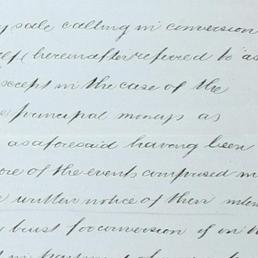 sale calling in conversion
(hereinafter referred to as
except in the case of the
principal moneys as
as aforesaid having been
of the events comprised in
written notice of their
trust for conversion of